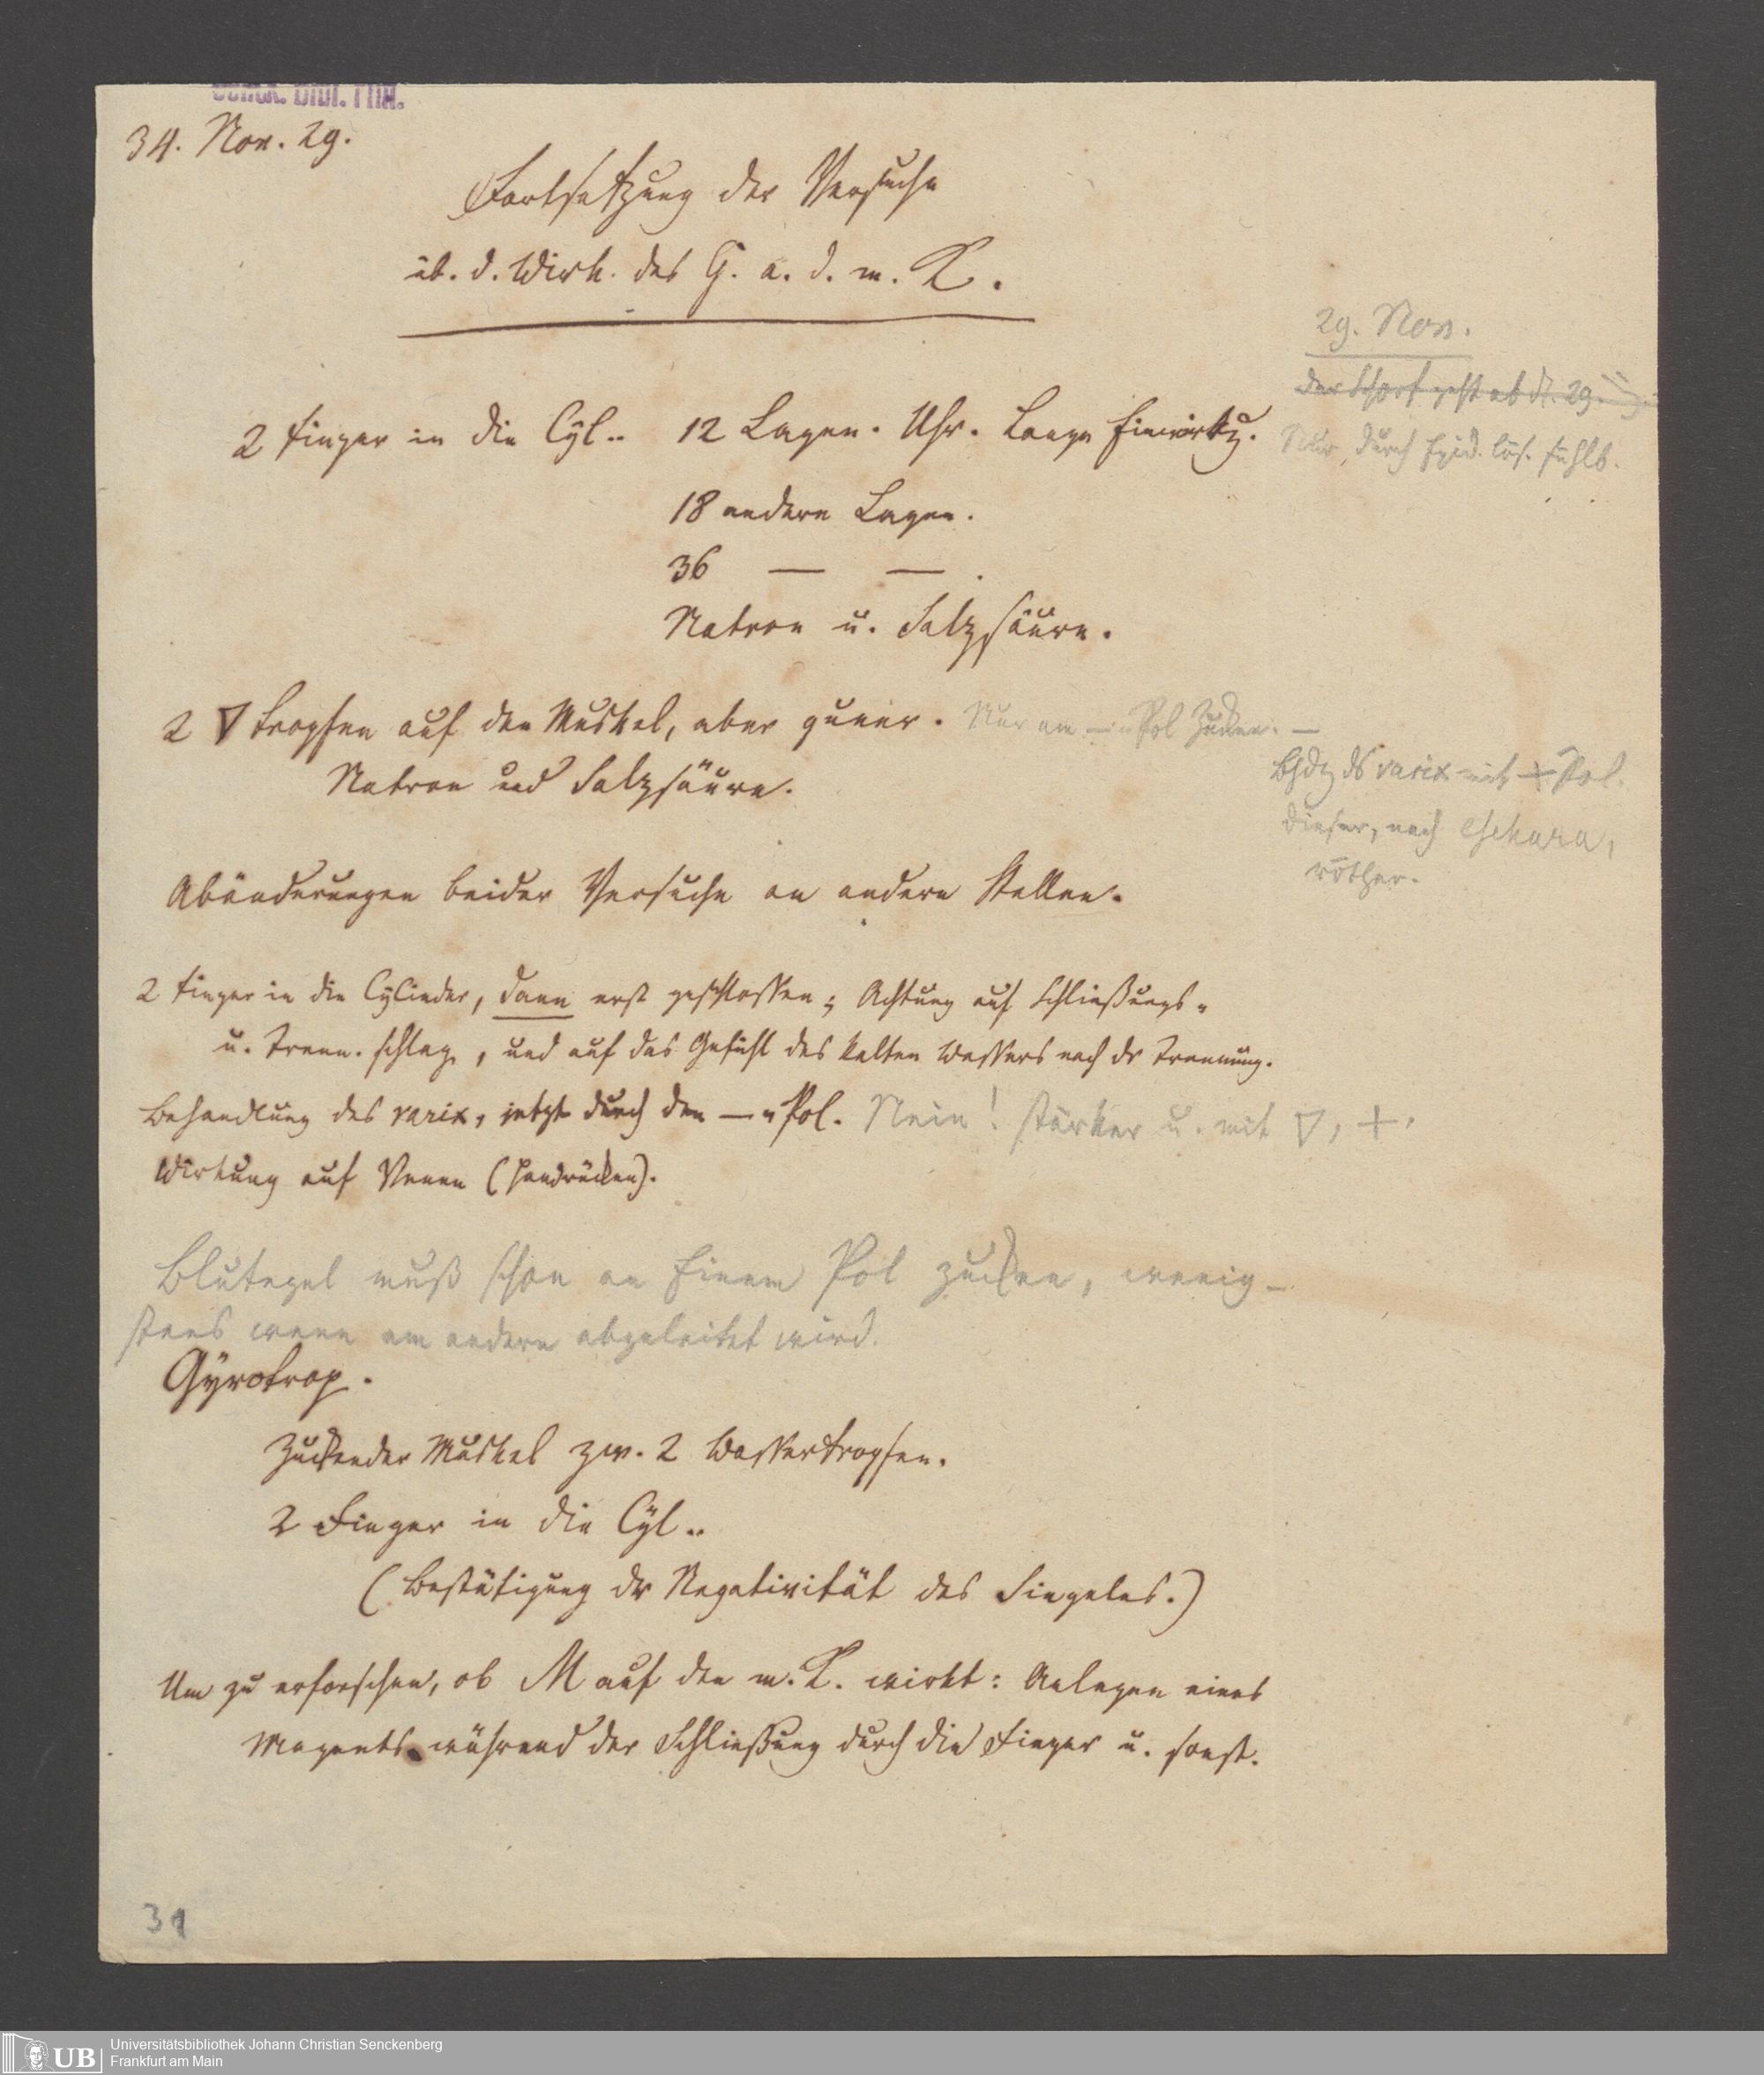 34. Nov. 29.
Fortsetzung der Versuche
üb. d. Wirk. des G. a. d. m. K.
29. Nov.
der Schorf geht ab d. 29.
Nur durch Epid. lös. fühlb.
2 Finger in die Cyl.. 12 Lagen. Uhr. Lange Einwirkg.
18 andere Lagen.
36 — — .
Natron u. Salzsäure.
2 ∇ tropfen auf den Muskel, aber queer. Nur am —n Pol Zucken. —
Natron und Salzsäure.
Bhdlg ds varix mit + Pol.
dieser, nach eschara,
röther.
Abänderungen beider Versuche an andern Stellen.
2 Finger in die Cylinder, dann erst geschlossen; Achtung auf Schließungs-
u. Trenn. schlag, und auf das Gefühl des kalten Wassers nach dr Trennung.
Behandlung des varix, jetzt durch den —n Pol. Nein! stärker u. mit ∇, +,
Wirkung auf Venen (Handrücken).
Blutegel muß schon an Einem Pol zucken, wenig-
stens wenn am andern abgeleitet wird.
Gyrotrop.
Zuckender Muskel zw. 2 Wassertropfen.
2 Finger in die Cyl..
(Bestätigung dr Negativität des Singeles.)
Um zu erforschen, ob M auf den m. K. wirkt: Anlegen eines
Magnets während der Schließung durch die Finger u. sonst.
31
UB
Universitätsbibliothek Johann Christian Senckenberg
Frankfurt am Main